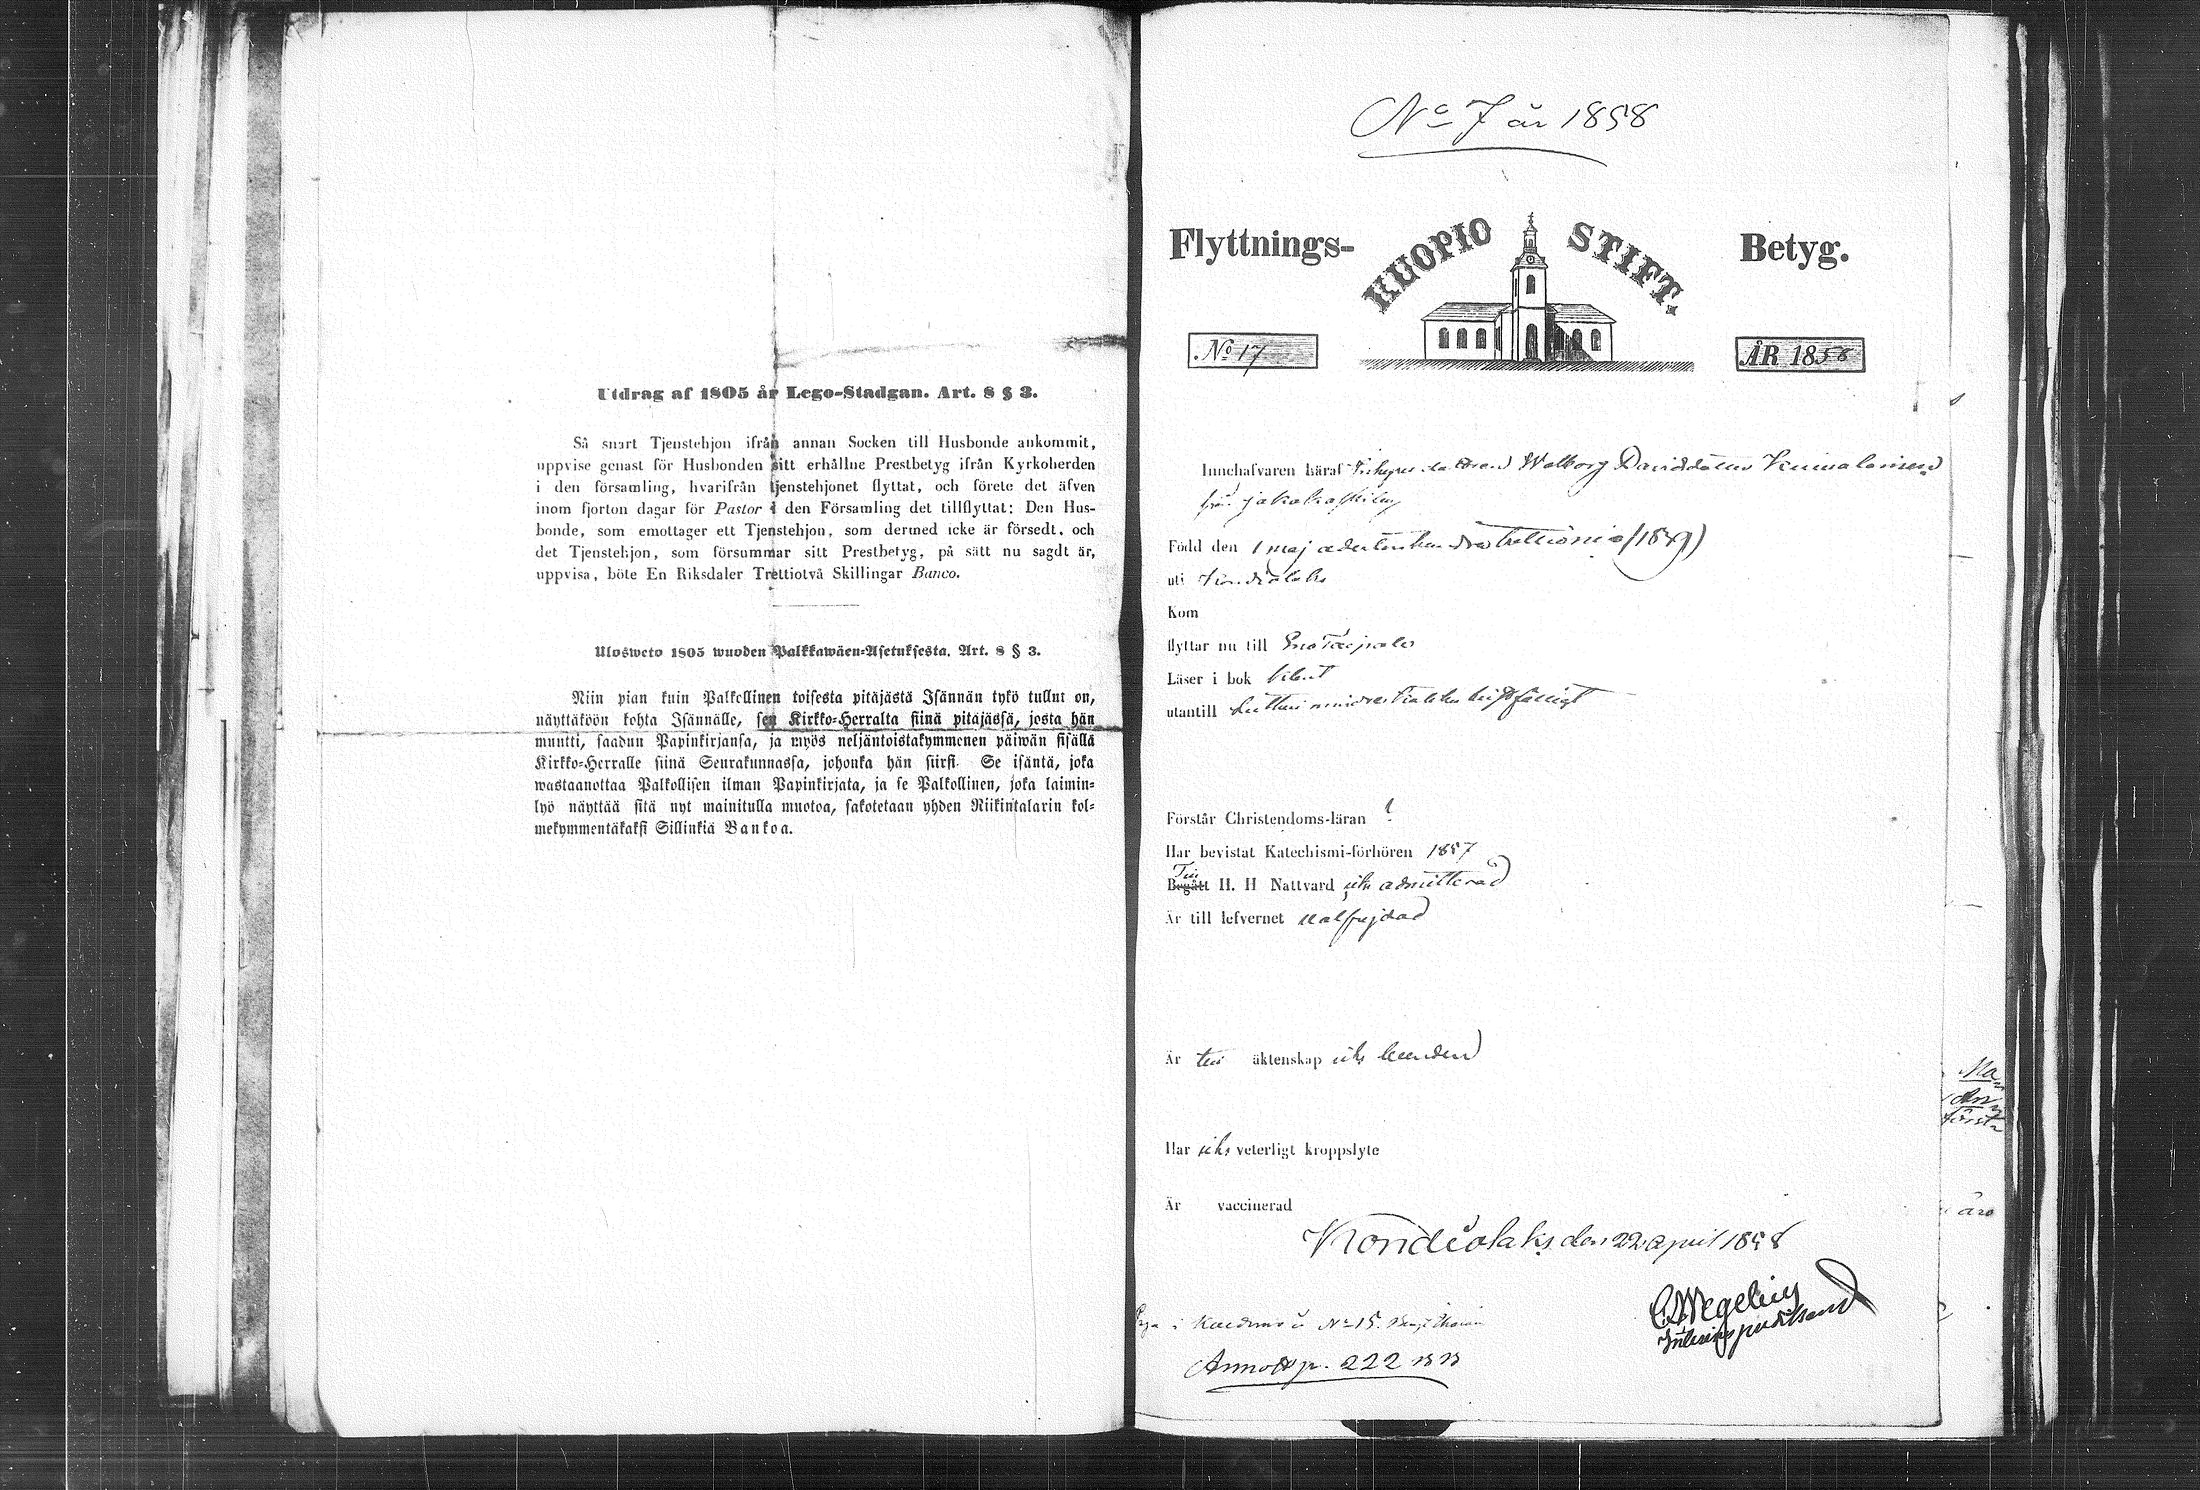 Utdrag af 1805 år Lego-Stadgan. Art. 8 § 3.
Så snart Tjenstehjon ifrån annan Socken till Husbonde ankommit,
uppvise genast för Husbonden sitt erhållne Prestbetyg ifrån Kyrkoherden
i den församling, hvarifrån tjenstehjonet flyttat, och förete det äfven
inom fjorton dagar för Pastor i den Församling det tillflyttat: Den Hus-
bonde, som emottager ett Tjenstehjon, som dermed icke är försedt, och
det Tjenstehjon, som försummar sitt Prestbetyg, på sätt nu sagdt är,
uppvisa, böte En Riksdaler Trettiotvå Skillingar Banco.
Ulosweto 1805 wuoden Palkkawäen-Asetuksesta. Art. 8 § 3.
Niin pian kuin Palkollinen toisesta pitäjästä Isännän tykö tullut on,
näyttäköön kohta Isännälle, sen Kirkko-Herralta siinä pitäjässä, josta hän
muutti, saadun Papinkirjansa, ja myös neljäntoistakymmenen päiwän sisällä
Kirkko-Herralle siinä Seurakunnassa, johonka hän siirsi. Se isäntä, joka
wastaanottaa Palkollisen ilman Papinkirjata, ja se Palkollinen, joka laimin-
lyö näyttää sitä nyt mainitulla muotoa, sakotetaan yhden Riikintalarin kol-
mekymmentäkaksi Sillinkiä Bankoa.
No 7 år 1858
Flyttnings- KUOPIO STIFT. Betyg.
No 17 ÅR 1858
Innehafvaren häraf Walborg Davidsdotter
från
Född den 1 maj adertonhundrade (1849)
uti Kondiolaks
Kom
flyttar nu till
Läser i bok
utantill Lutheri
Förstår Christendoms-läran
Har bevistat Katechismi-förhören 1857
Till
Begått H. H Nattvard icke admitterad
Är till lefvernet välfrejdad
Är till äktenskap icke bunden
Har icke veterligt kroppslyte
Är vaccinerad
Kondiolaks den 22 april 1858
C Wegelius
i No 15.
Annot p. 222